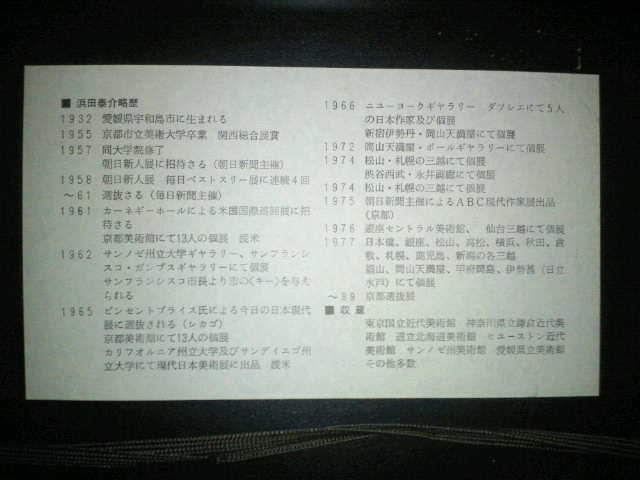 ■ 浜田泰介略歴
1932 愛媛県宇和島市に生まれる
1955 京都市立美術大学卒業 関西総合展賞
1957 同大学院修了
朝日新人展に招待さる(朝日新聞主催)
1958 朝日新人展 毎日ベストスリー展に連続4回
～61 選抜さる(毎日新聞主催)
1961 カーネギーホールによる米国国際巡回展に招
待さる
京都美術館にて13人の個展 渡米
1962 サンノゼ州立大学ギャラリー、サンフランシ
スコ・ガンプスギャラリーにて個展
サンフランシスコ市長より市の<キー>を与え
られる
1965 ビンセントプライズ氏による今日の日本現代
展に選抜される(シカゴ)
京都美術館にて13人の個展
カリフォルニア州立大学及びサンディエゴ州
立大学にて現代日本美術展に出品 渡米
1966 ニューヨークギャラリー ダソシエにて5人
の日本作家及び個展
新宿伊勢丹・岡山天満屋にて個展
1972 岡山天満屋・ポールギャラリーにて個展
1974 松山・札幌の三越にて個展
渋谷西武・永井画廊にて個展
1974 松山・札幌の三越にて個展
1975 朝日新聞主催によるABC現代作家展出品
(京都)
1976 銀座セントラル美術館、 仙台三越にて個展
1977 日本橋、銀座、松山、高松、横浜、秋田、倉
敷、札幌、鹿児島、新潟の各三越
福山、岡山天満屋、甲府岡島、伊勢甚(日立
水戸)にて個展
～89 京都選抜展
■ 収蔵
東京国立近代美術館 神奈川県立鎌倉近代美
術館 道立北海道美術館 ヒューストン近代
美術館 サンノゼ州美術館 愛媛県立美術館
その他多数